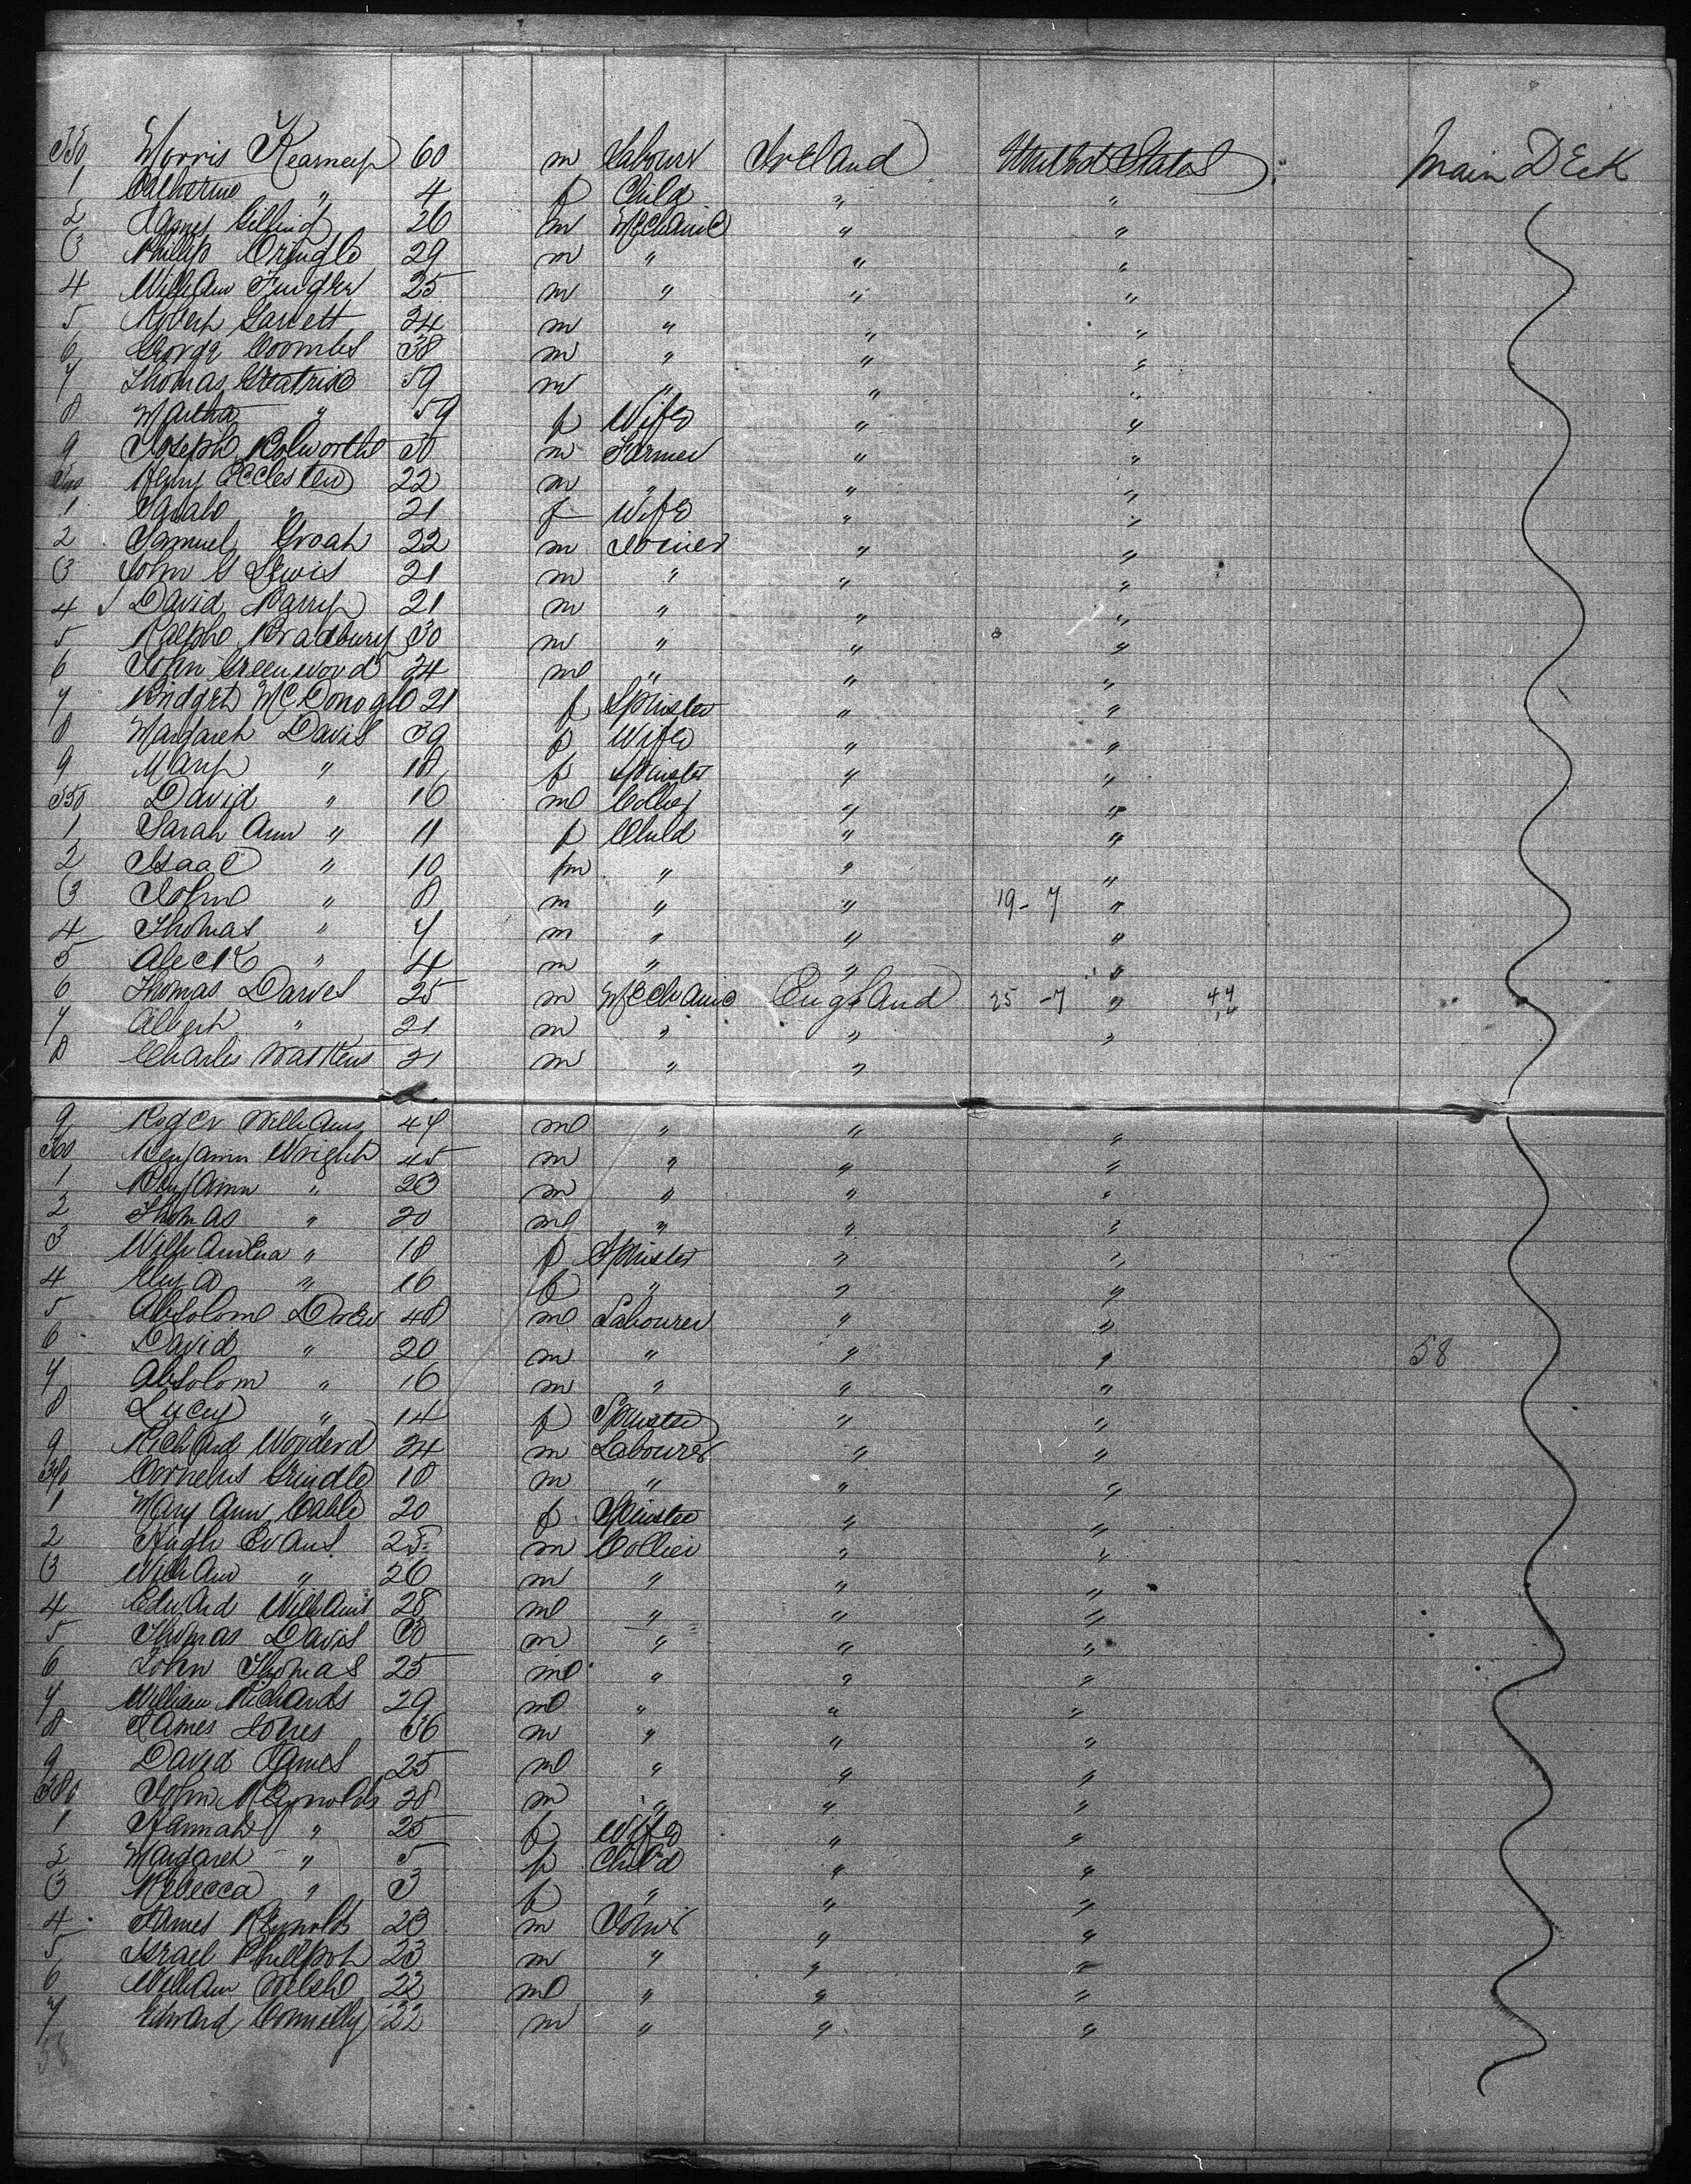 330 Morris Kearney 60 m Labourer Ireland United States Main Deck
1 Catherine " 4 f Child " "
2 James 26 m Mechanic " "
3 Phillip 29 m " " "
4 William 25 m " " "
5 Robert Garrett 24 m " " "
6 George Coombes 38 m " " "
7 Thomas Greatrix 59 m " " "
8 Martha " 59 f Wife " "
9 Joseph Rolworth 30 m Farmer " "
340 Henry Eccleston 22 m " " "
1 Sarah " 21 f Wife " "
2 Samuel Groah 22 m Joiner " "
3 John G Lewis 21 m " " "
4 David Parry 21 m " " "
5 Ralph Bradbury 30 m " " "
6 John Greenwood 24 m " " "
7 Bridget McDonogh 21 f Spinster " "
8 Margaret Davis 39 f Wife " "
9 Mary " 18 f Spinster " "
350 David " 16 m Collier " "
1 Sarah Ann " 11 f Child " "
2 Isaac " 10 m " " "
3 John " 8 m " " 19-7 "
4 Thomas " 7 m " " "
5 Aleck " 4 m " " "
6 Thomas Davies 25 m Mechanic England 25-7 " 44
7 Albert " 21 m " " "
8 Charles Watkins 21 m " "
9 Roger Williams 44 m " " "
360 Benjamin Wright 45 m " " "
1 Benjamin " 23 m " " "
2 Thomas " 20 m " " "
3 Williamena " 18 f Spinster " "
4 Eliza " 16 f " " "
5 Absolom Drew 48 m Labourer " "
6 David " 20 m " " " 58
7 Absolom " 16 m " " "
8 Lucy " 14 f Spinster " "
9 Richard 24 m Labourer " "
370 Cornelius Grindle 18 m " " "
1 Mary Ann Cable 20 f Spinster " "
2 Hugh Evans 25 m Collier " "
3 William " 26 m " " "
4 Edward Williams 28 m " " "
5 Thomas Davis 30 m " " "
6 John Thomas 25 m " " "
7 William Richards 29 m " " "
8 James Jones 36 m " " "
9 David James 25 m " " "
380 John Reynolds 28 m " " "
1 Hannah " 25 f Wife " "
2 Margaret " 5 f Child " "
3 Rebecca " 3 f " " "
4 James Reynolds 23 m Joiner " "
5 Israel Phillpot 23 m " " "
6 William Welsh 22 m " " "
7 Edward Connolly 22 m " " "
58